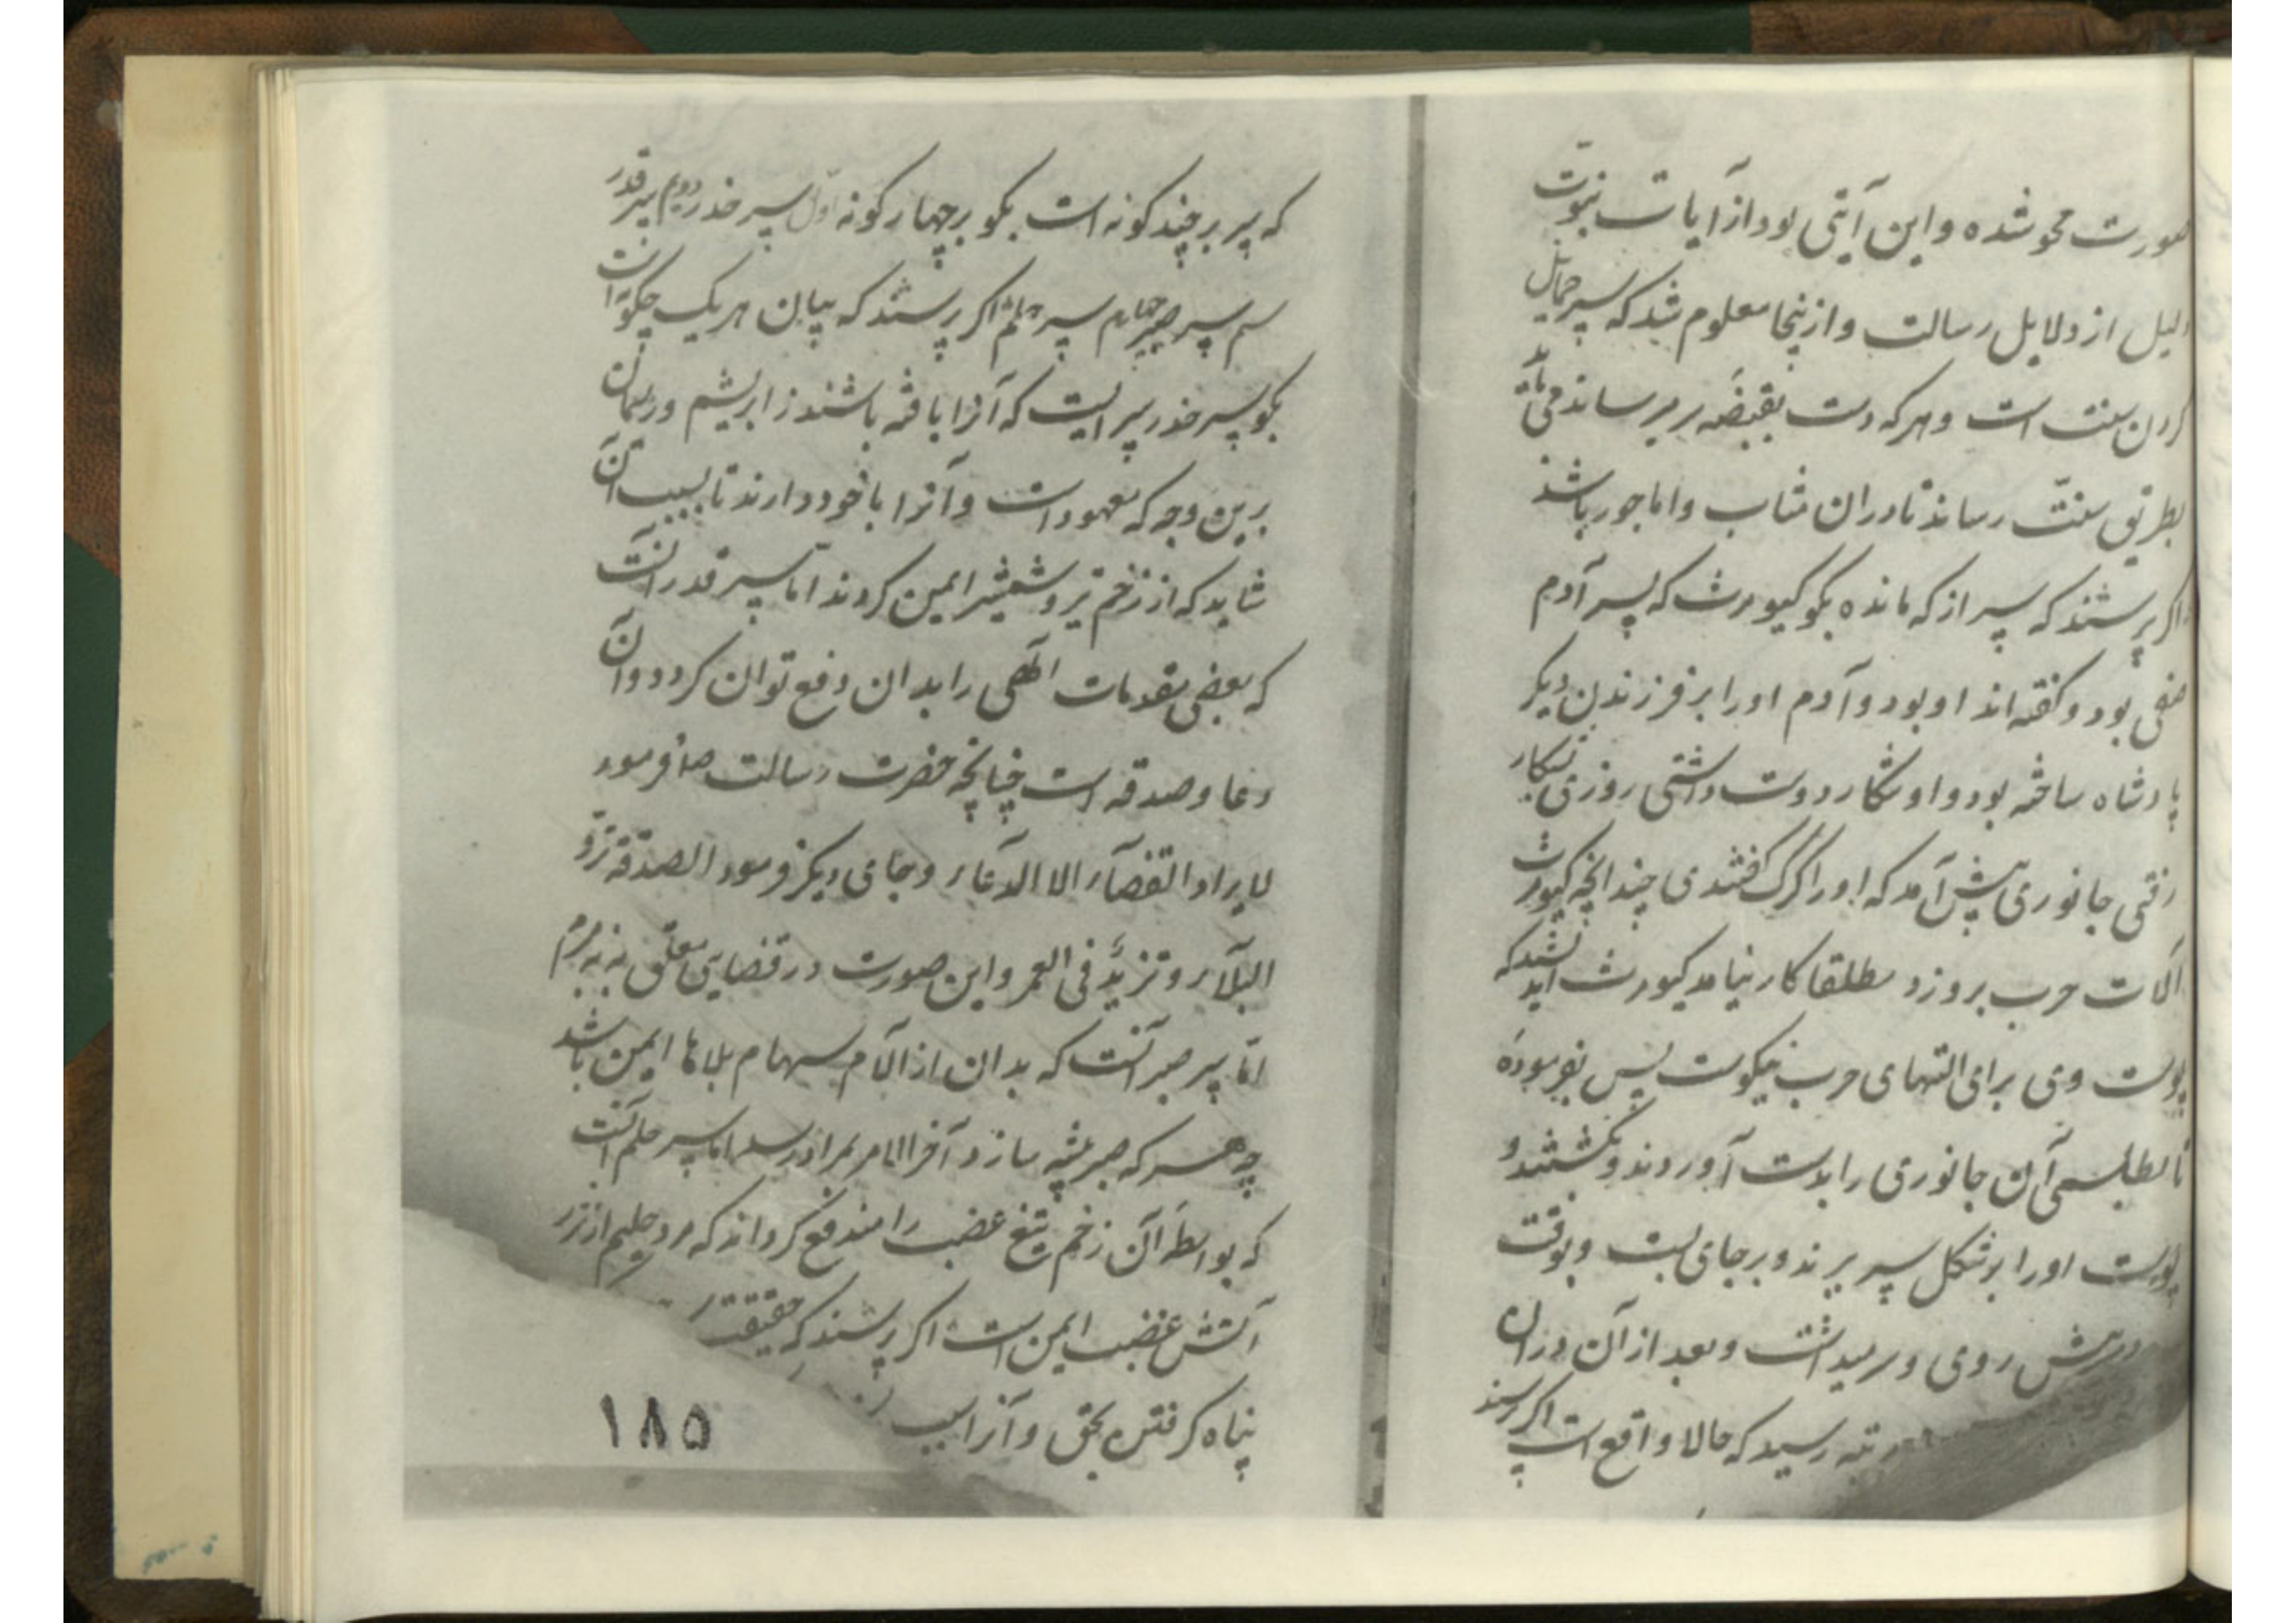 صورت محو شده و این آیتی بود از آیات نبوت
دلیل از دلایل رسالت و ازینجا معلوم شد که سپر حمایل
کردن سنت است و هر که دست بقبضه رساند می باید
بطریق سنت رساند تا دران مثاب و ماجور باشد
اکر پرسند که سپر از که مانده بکو کیومرث که پسر آدم
صفی بود و کفته اند او بود و آدم او را بر فرزندن دیکر
پادشاه ساخته بود و او شکار دوست داشتی روزی بشکار
رفتی جانوری پیش آمد که او را کرک کفتندی چندانچه کیومرث
آلات حرب برو زد مطلقا کار نیامد کیومرث اندیشید که
پوست وی برای التهای حرب نیکوست پس بفرموده
تا بطلسمی آن جانوری را بدست آوردند و بکشتند و
پوست او را بر شکل سپر برند و بر جای بست و بوقت
روی و سر میداشت و بعد از آن دران
رتبه رسید که حالا واقع است اکر پرسند
که سپر بر چند کونه است بکو بر چهار کونه اول سپر حذر دویم سپر قدر
سیم سپر صبر چهارم سپر حلم اکر پرسند که بیان هر یک چکونه است
بکو سپر حذر سپر ایست که آنرا بافته باشند ز ابریشم و ریسمان
برین وجه که معهود است و آنرا با خود دارند تا بسبب آن
شاید که از زخم تیر و شمشیر ایمن کردند اما سپر قدر آنست
که بعضی مقدمات الهی را بدان دفع توان کردد و آن
دعا و صدقه است چنانچه حضرت رسالت صلم فرمود
لا یراد القضآء الا الدعاء و جای دیکر فرمود الصدقة ترد
البلآء و تزید فی العمر و این صورت در قضایی معلق نه نه مبرم
اما سپر صبر آنست که بدان از الآم سهام بلاها ایمن باشد
چه هر که صبر پیشه سازد آخر الامر بمراد رسد اما سپر حلم آنست
که بواسطه آن زخم تیغ غضب را مندفع کرداند که مرد حلیم از زر
آتش غضب ایمن است اکر پرسند که حقیقت
پناه کرفتن بحق و آنرا سپر
۱۸۵